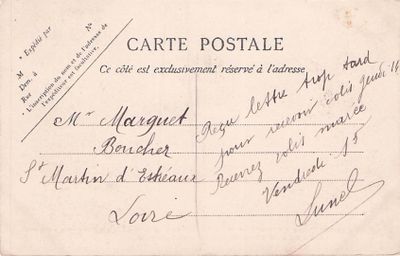 Expédié par
N°
M
Dem. à
Rue
L'inscription du nom et de l'adresse de
l'expéditeur est facultative.
CARTE POSTALE
Ce côté est exclusivement réservé à l'adresse
Mr Marguet
Boucher
St Martin d'Estréaux
Loire
Reçu lettre trop tard
pour recevoir colis jeudi 14
Recevrez colis marée
Vendredi 15
Lunel